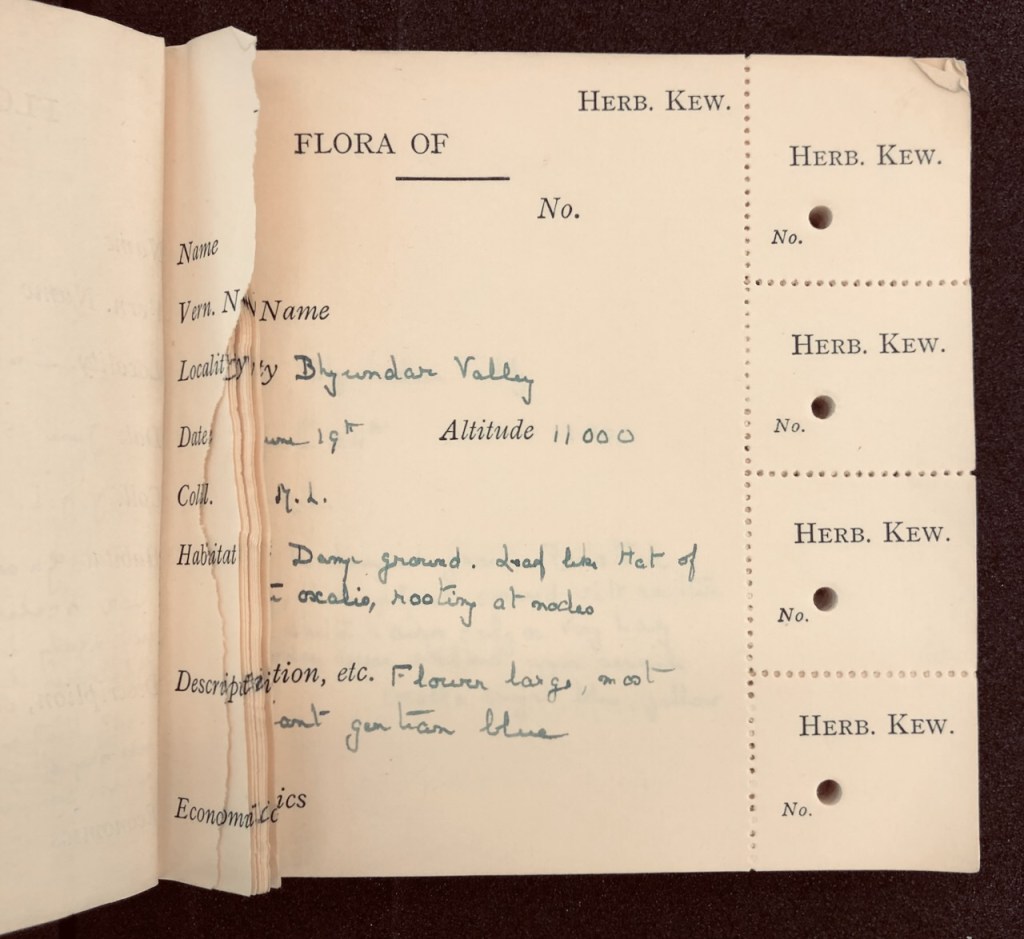 HERB. KEW.
FLORA OF
No.
Name
Vern. N Name
Locality ty Bhyundar Valley
Date une 19th Altitude 11000
Coll. M. L.
Habitat Damp ground. Leaf like that of
oxalis, rooting at nodes
Description tion, etc. Flower large, most
ant gentian blue
Economic ics
HERB. KEW.
No.
HERB. KEW.
No.
HERB. KEW.
No.
HERB. KEW.
No.